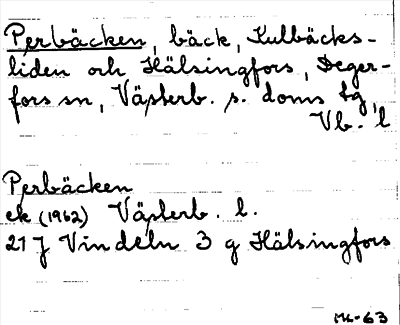 Perbäcken, bäck, Kulbäcks-
liden och Hälsingfors, Deger-
fors sn, Västerb. s. doms tg,
Vb. l
Perbäcken
ek (1962) Västerb. l.
21 J Vindeln 3 g Hälsingfors
ML-63